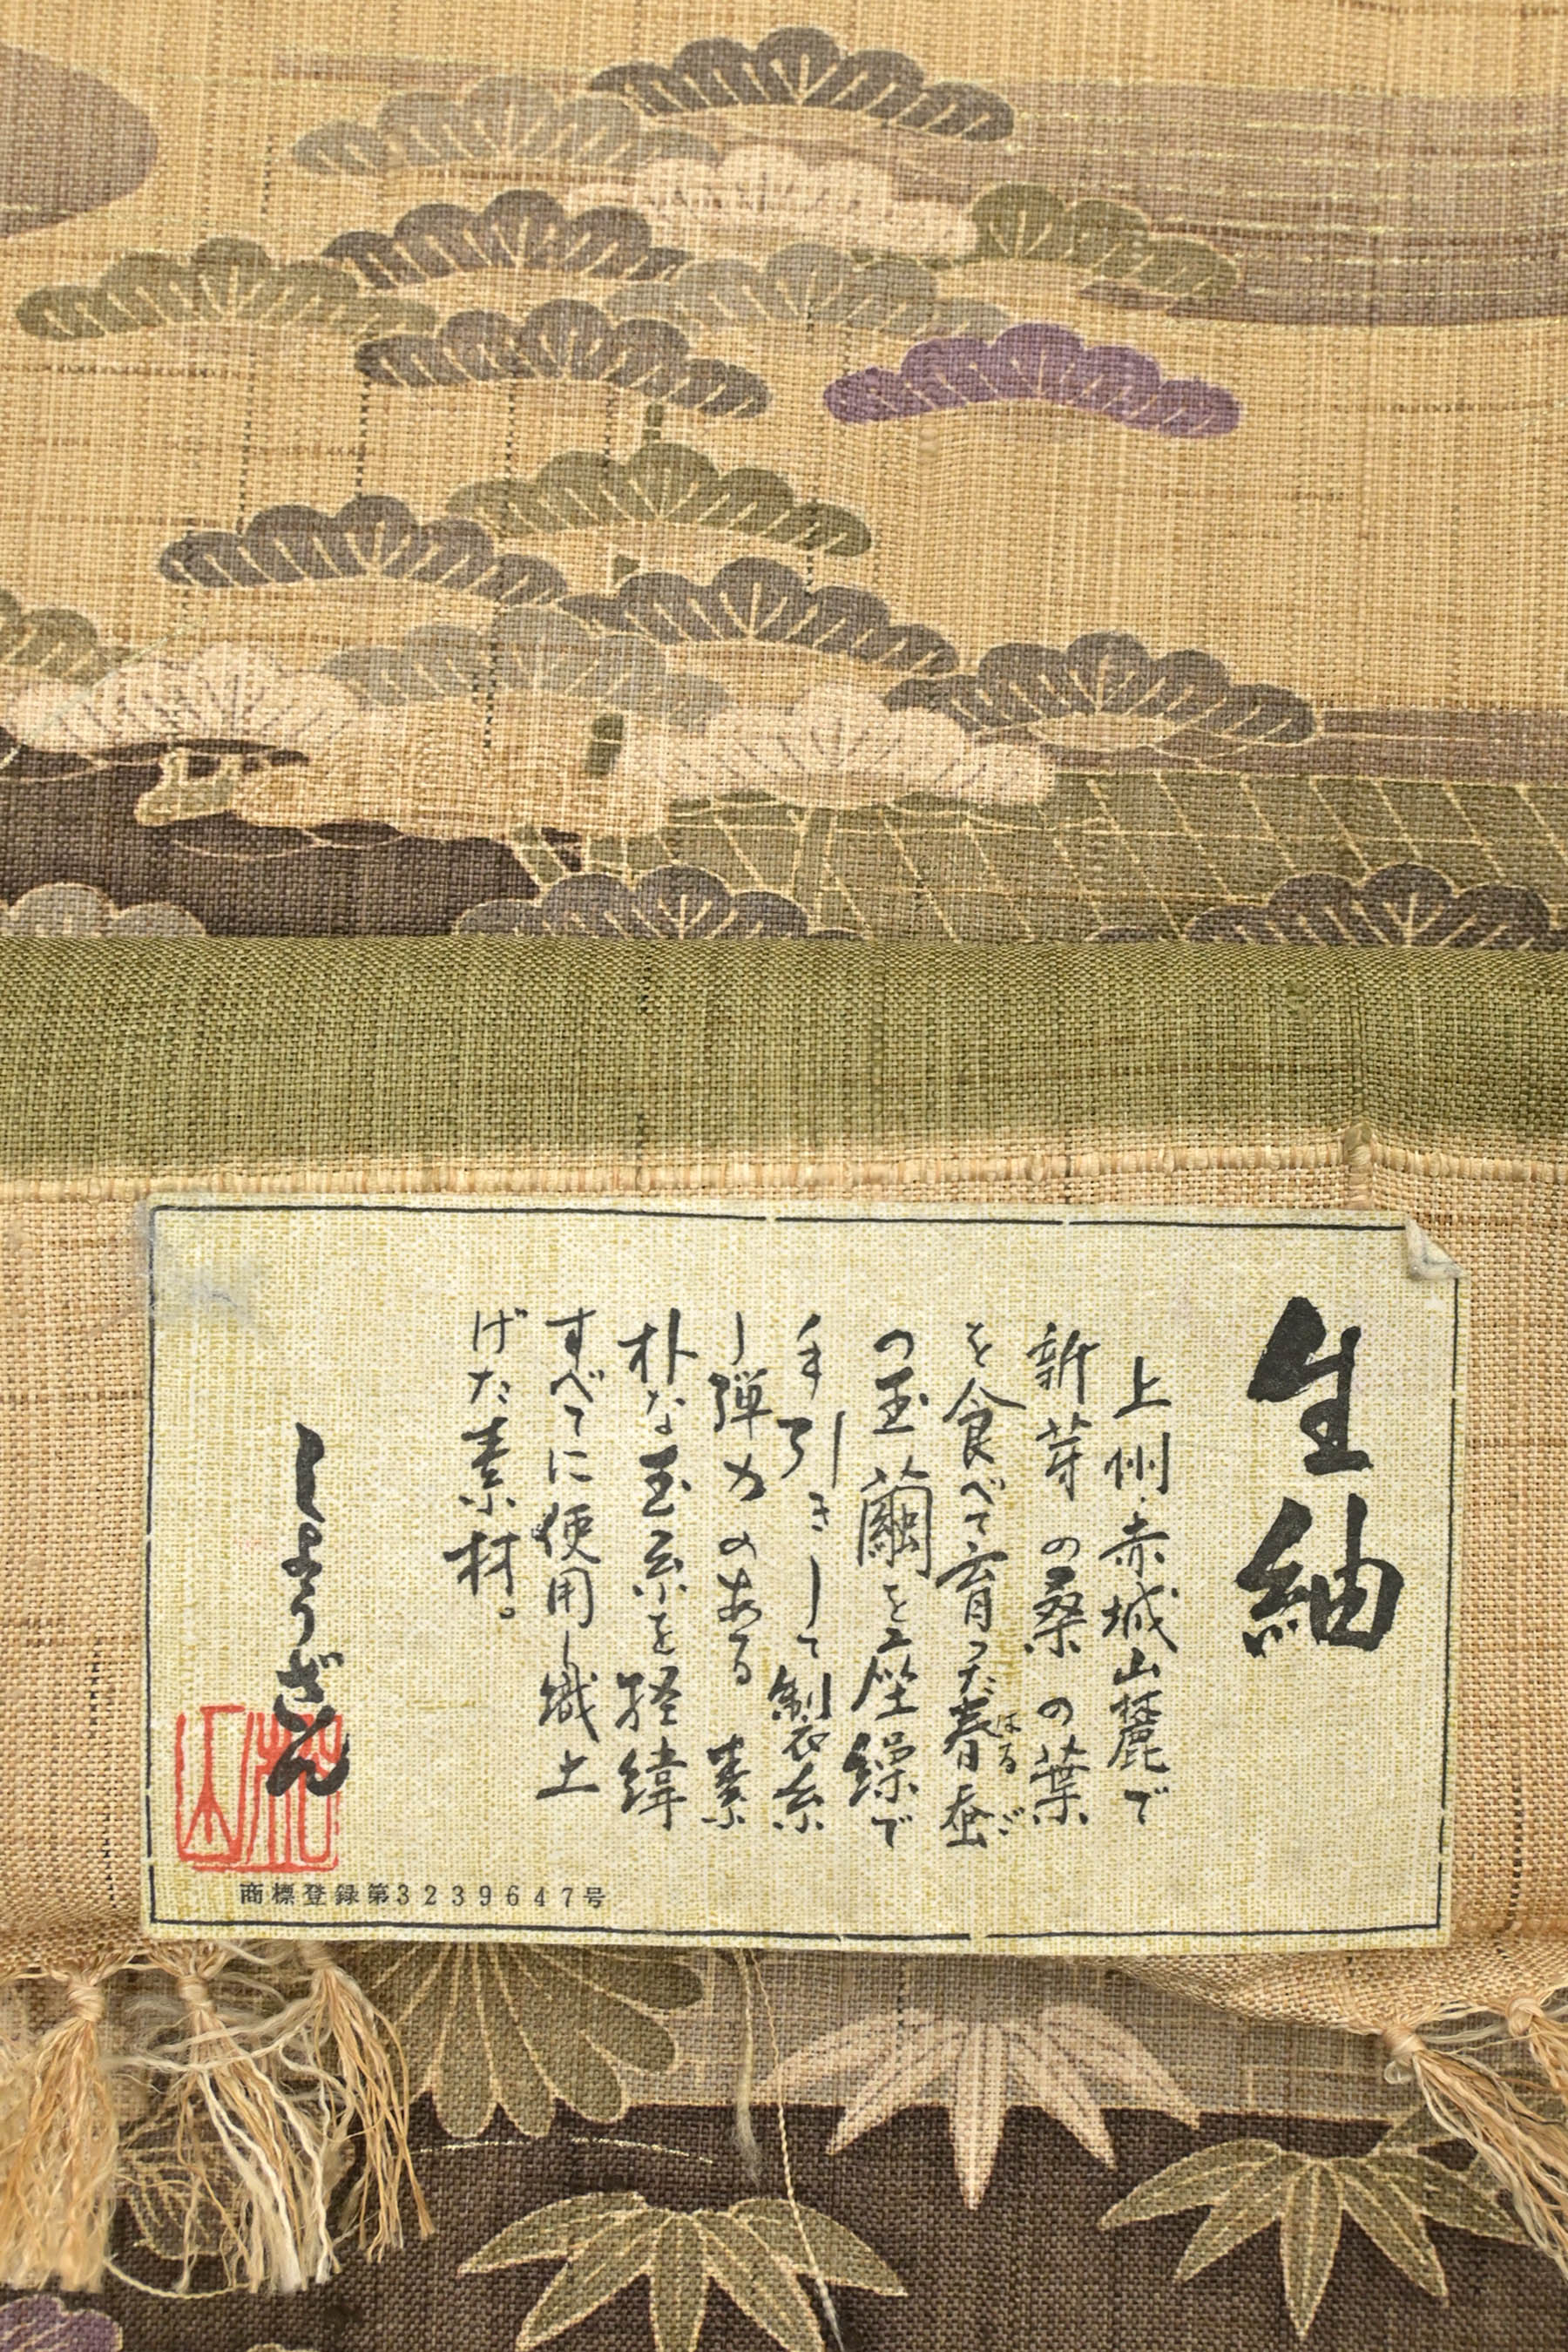 生紬
上州・赤城山麓で
新芽の桑の葉
を食べて育った春蚕
はるご
の玉繭を座繰で
手引きして製糸
し弾力のある素
朴な玉糸を経緯
すべてに使用し織上
げた素材。
しょうざん
松山
商標登録第3239647号